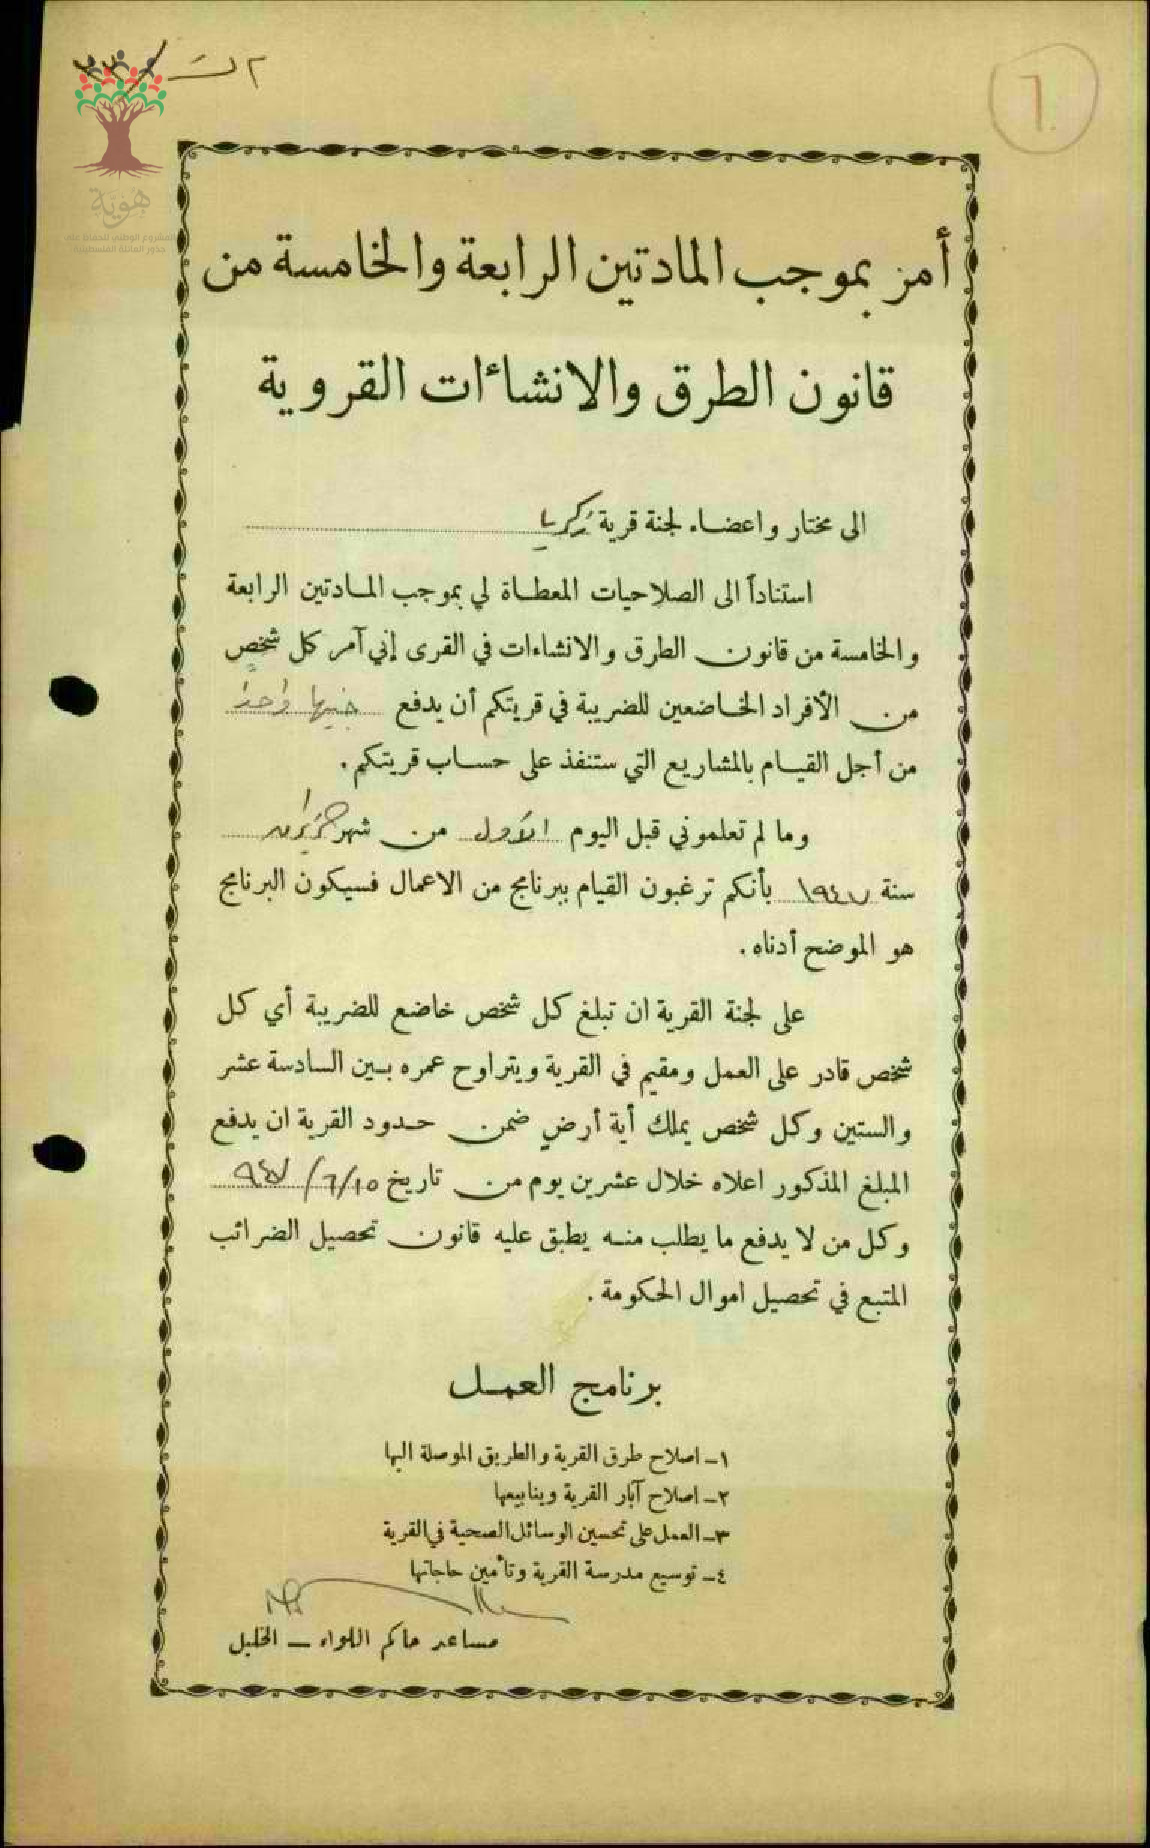 ٦
هوية
المشروع الوطني للحفاظ على
جذور العائلة الفلسطينية
أمر بموجب المادتين الرابعة والخامسة من
قانون الطرق والانشاءات القروية
الى مختار واعضاء لجنة قرية زكريا
استناداً الى الصلاحيات المعطاة لي بموجب المادتين الرابعة
والخامسة من قانون الطرق والانشاءات في القرى إني آمر كل شخصٍ
من الأفراد الخاضعين للضريبة في قريتكم أن يدفع جنيها واحدا
من أجل القيام بالمشاريع التي ستنفذ على حساب قريتكم.
وما لم تعلموني قبل اليوم الاول من شهر حزيران
سنة ١٩٤٧ بأنكم ترغبون القيام ببرنامج من الاعمال فسيكون البرنامج
هو الموضح أدناه.
على لجنة القرية ان تبلغ كل شخص خاضع للضريبة أي كل
شخص قادر على العمل ومقيم في القرية ويتراوح عمره بين السادسة عشر
والستين وكل شخص يملك أية أرضٍ ضمن حدود القرية ان يدفع
المبلغ المذكور اعلاه خلال عشرين يوم من تاريخ ١٥/٦/٩٤٧
وكل من لا يدفع ما يطلب منه يطبق عليه قانون تحصيل الضرائب
المتبع في تحصيل اموال الحكومة.
برنامج العمل
١- اصلاح طرق القرية والطريق الموصلة اليها
٢- اصلاح آبار القرية وينابيعها
٣- العمل على تحسين الوسائل الصحية في القرية
٤- توسيع مدرسة القرية وتأمين حاجاتها
مساعد حاكم اللواء - الخليل